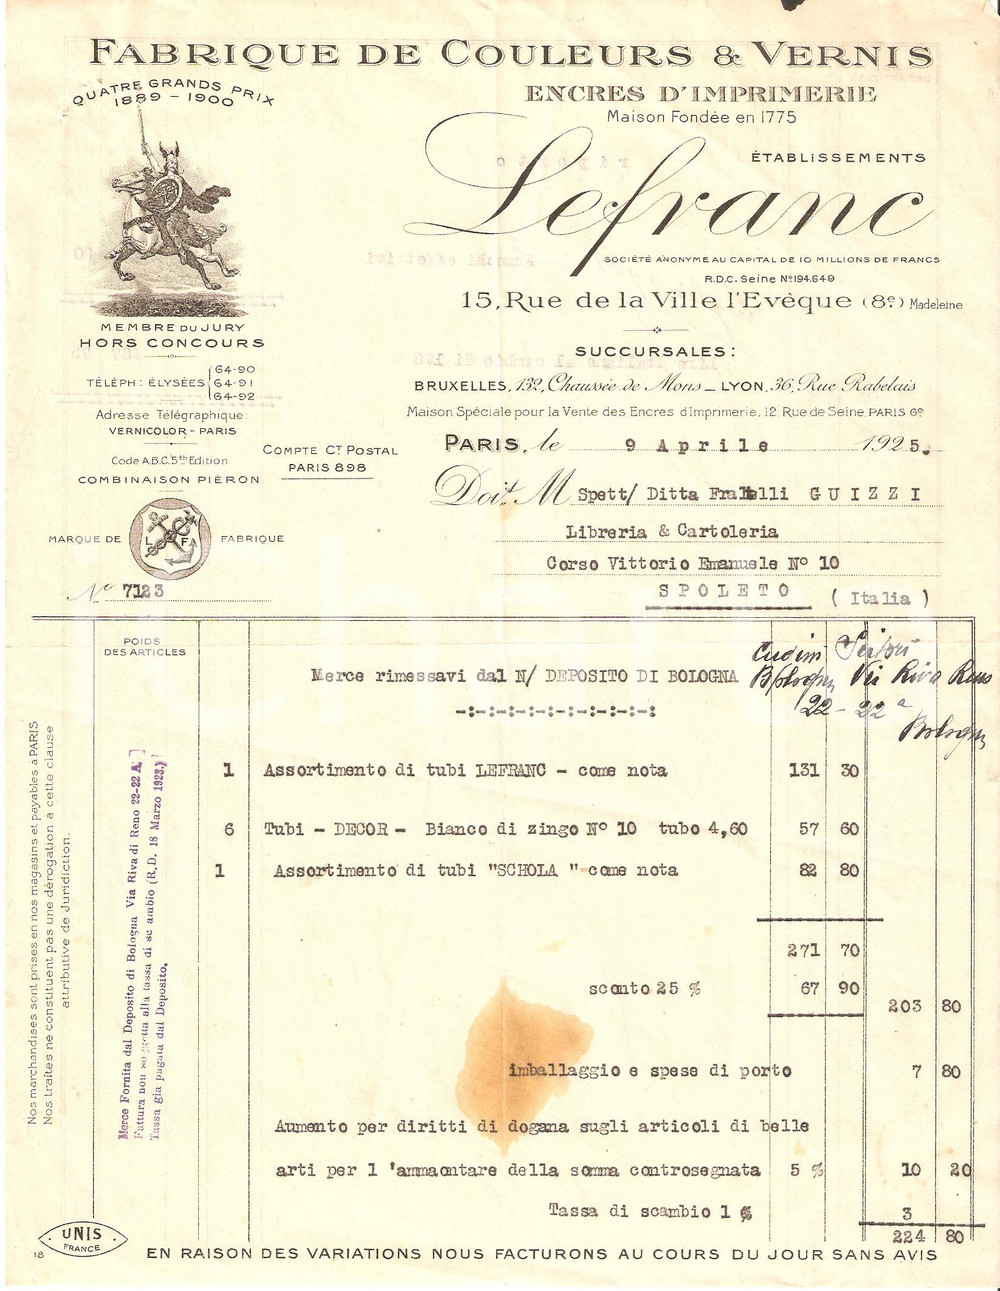 FABRIQUE DE COULEURS & VERNIS
QUATRE GRANDS PRIX
1889 - 1900
ENCRES D'IMPRIMERIE
Maison Fondée en 1775
ÉTABLISSEMENTS
Lefranc
SOCIÉTÉ ANONYME AU CAPITAL DE 10 MILLIONS DE FRANCS
R.D.C. Seine Nº 194.649
15, Rue de la Ville l'Evêque (8e) Madeleine
MEMBRE DU JURY
HORS CONCOURS
TÉLÉPH: ÉLYSÉES
64-90
64-91
64-92
Adresse Télégraphique:
VERNICOLOR - PARIS
Code A.B.C. 5th Edition
COMBINAISON PIÉRON
COMPTE CT POSTAL
PARIS 898
MARQUE DE
L FA
FABRIQUE
Nº 7123
SUCCURSALES:
BRUXELLES, 132, Chaussée de Mons _ LYON, 36, Rue Rabelais
Maison Spéciale pour la Vente des Encres d'Imprimerie, 12, Rue de Seine, PARIS 6e
PARIS, le 9 Aprile 1925.
Doit M Spett/ Ditta Fratelli GUIZZI
Libreria & Cartoleria
Corso Vittorio Emanuele Nº 10
SPOLETO (Italia)
POIDS
DES ARTICLES
Via Riva Reno
22 - 22 a
Bologna
Merce rimessavi dal N/ DEPOSITO DI BOLOGNA
-:-:-:-:-:-:-:-:-:-:-
1 Assortimento di tubi LEFRANC - come nota 131 30
6 Tubi - DECOR - Bianco di zingo Nº 10 tubo 4,60 57 60
1 Assortimento di tubi "SCHOLA " come nota 82 80
271 70
sconto 25 % 67 90
203 80
imballaggio e spese di porto 7 80
Aumento per diritti di dogana sugli articoli di belle
arti per l 'ammaontare della somma controsegnata 5 % 10 20
Tassa di scambio 1 % 3
224 80
Nos marchandises sont prises en nos magasins et payables à PARIS
Nos traites ne constituent pas une dérogation à cette clause
attributive de Juridiction.
Merce Fornita dal Deposito di Bologna Via Riva di Reno 22-22 A
Fattura non soggetta alla tassa di scambio (R.D. 18 Marzo 1923.)
Tassa gia pagata dal Deposito.
UNIS
FRANCE
18
EN RAISON DES VARIATIONS NOUS FACTURONS AU COURS DU JOUR SANS AVIS